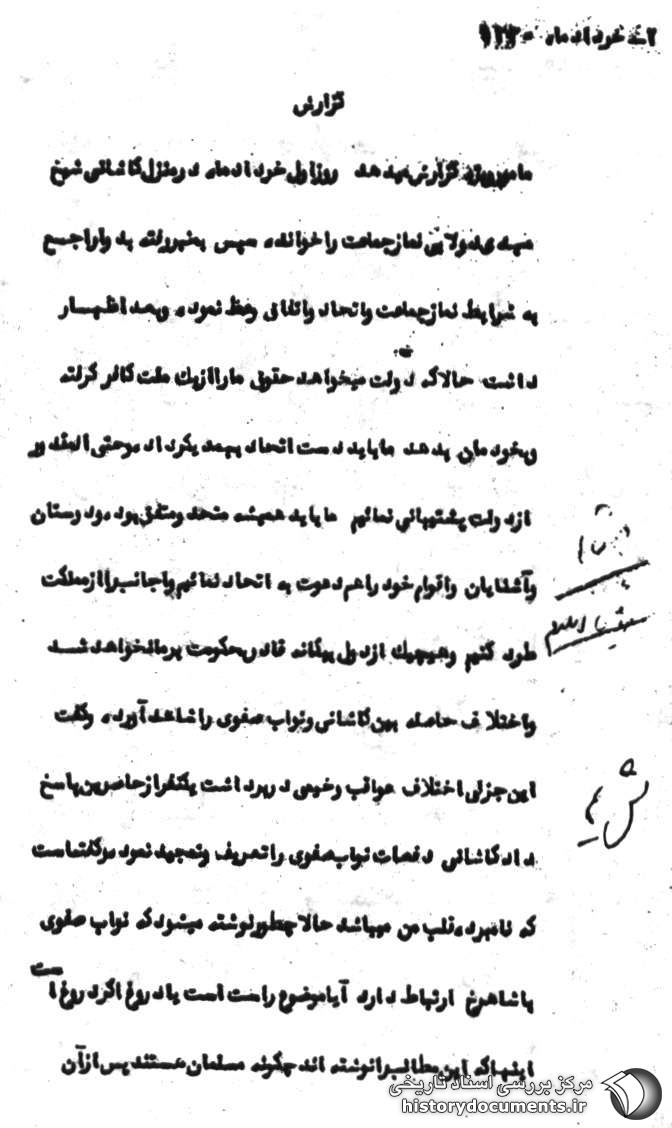 خرداد ماه ۱۳۳۰
گزارش
مامور ویژه گزارش میدهد روز اول خرداد ماه در منزل کاشانی شیخ
مهدی دولابی نماز جماعت را خوانده سپس بمنبر رفته بدوا راجع
به شرایط نماز جماعت و اتحاد و اتفاق وعظ نموده و بعد اظهار
داشت حالا که دولت میخواهد حقوق ما را از یک ملت کافر گرفته
و بخودمان بدهد ما باید دست اتحاد بهمدیگر داده و حتی المقدور
از دولت پشتیبانی نمائیم ما باید همیشه متحد و متفق بوده و دوستان
و آشنایان و اقوام خود را هم دعوت به اتحاد نمائیم و اجانب را از مملکت
طرد کنیم و هیچیک از دول بیگانه قادر بحکومت بر ما نخواهد شد
و اختلاف حاصله بین کاشانی و نواب صفوی را شاهد آورده و گفت
این جزئی اختلاف عواقب وخیمی در بر داشت یکنفر از حاضرین پاسخ
داد کاشانی دفعات نواب صفوی را تعریف و تمجید نموده و گفته است
که نامبرده قلب من میباشد حالا چطور نوشته میشود که نواب صفوی
با شاهرخ ارتباط دارد آیا موضوع راست است یا دروغ اگر دروغ است
اینها که این مطالب را نوشته اند چگونه مسلمان هستند پس از آن
مرکز بررسی اسناد تاریخی
historydocuments.ir